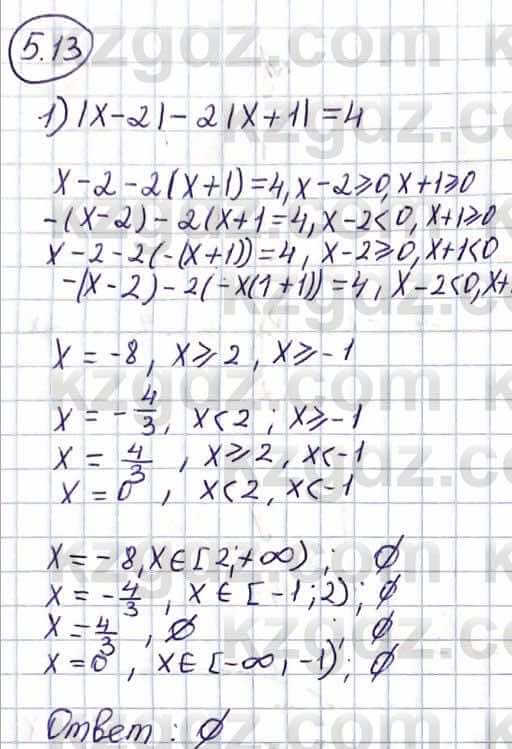 5.13
1) |x-2|-2|x+1|=4
x-2-2(x+1)=4, x-2⩾0, x+1⩾0
-(x-2)-2(x+1=4, x-2<0, x+1⩾0
x-2-2(-(x+1))=4, x-2⩾0, x+1<0
-(x-2)-2(-x(1+1))=4, x-2<0, x+
x=-8, x⩾2, x⩾-1
x=-4/3, x<2; x⩾-1
x=4/3, x⩾2, x<-1
x=0, x<2, x<-1
x=-8, x∈[2;+∞); ∅
x=-4/3, x∈[-1;2); ∅
x=4/3, ∅; ∅
x=0, x∈[-∞,-1); ∅
Ответ: ∅
kzgdz.com